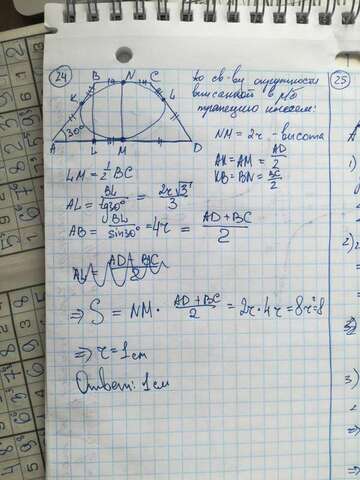 24
25
по св-ву окружности
вписанной в р/б
трапецию имеем:
B N C
K L
30°
A L M D
NM = 2r - высота
AK = AM = AD/2
KB = BN = BC/2
LM = 1/2 BC
AL = BL/tg30° = 2r√3/3
AB = BL/sin30° = 4r = AD+BC/2
⇒ S = NM · AD+BC/2 = 2r·4r = 8r² = 8
⇒ r = 1 см
Ответ: 1 см
1)
2)
3)